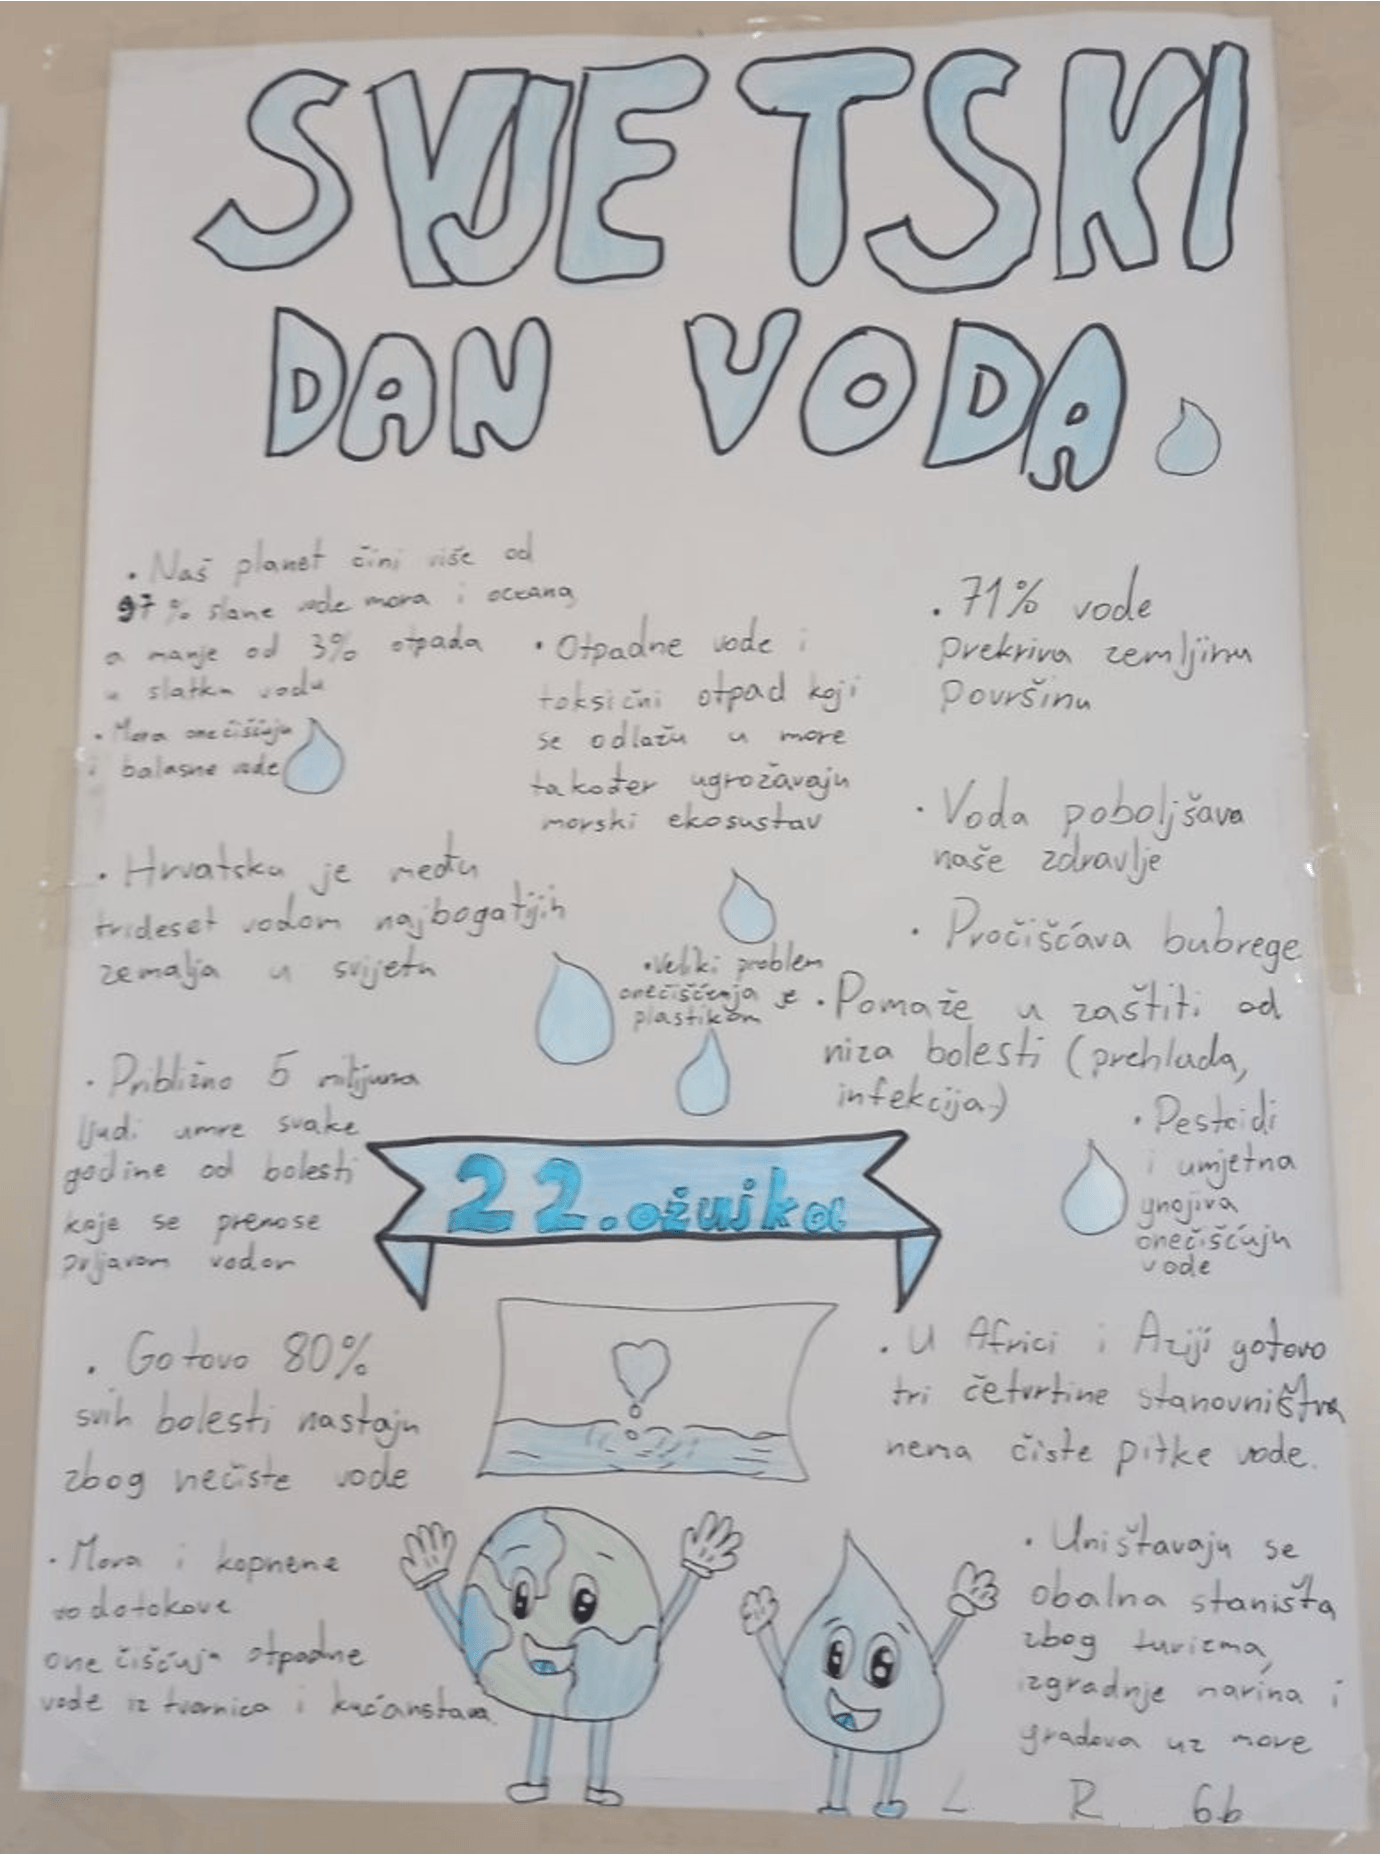 SVJETSKI
DAN VODA
• Naš planet čini više od
97% slane vode mora i oceana,
a manje od 3% otpada
u slatku vodu
• Mora onečišćuju
i balasne vode
• Hrvatska je među
trideset vodom najbogatijih
zemalja u svijetu
• Približno 5 milijuna
ljudi umre svake
godine od bolesti
koje se prenose
prljavom vodom
• Gotovo 80%
svih bolesti nastaju
zbog nečiste vode
• Mora i kopnene
vodotokove
onečišćuju otpadne
vode iz tvornica i kućanstava
• Otpadne vode i
toksični otpad koji
se odlažu u more
također ugrožavaju
morski ekosustav
• Veliki problem
onečišćenja je
plastikom
22. ožujka
• 71% vode
prekriva zemljinu
površinu
• Voda poboljšava
naše zdravlje
• Pročišćava bubrege
• Pomaže u zaštiti od
niza bolesti (prehlada,
infekcija)
• Pesticidi
i umjetna
gnojiva
onečišćuju
vode
• U Africi i Aziji gotovo
tri četvrtine stanovništva
nema čiste pitke vode.
• Uništavaju se
obalna staništa
zbog turizma,
izgradnje marina i
gradova uz more
L R 6.b